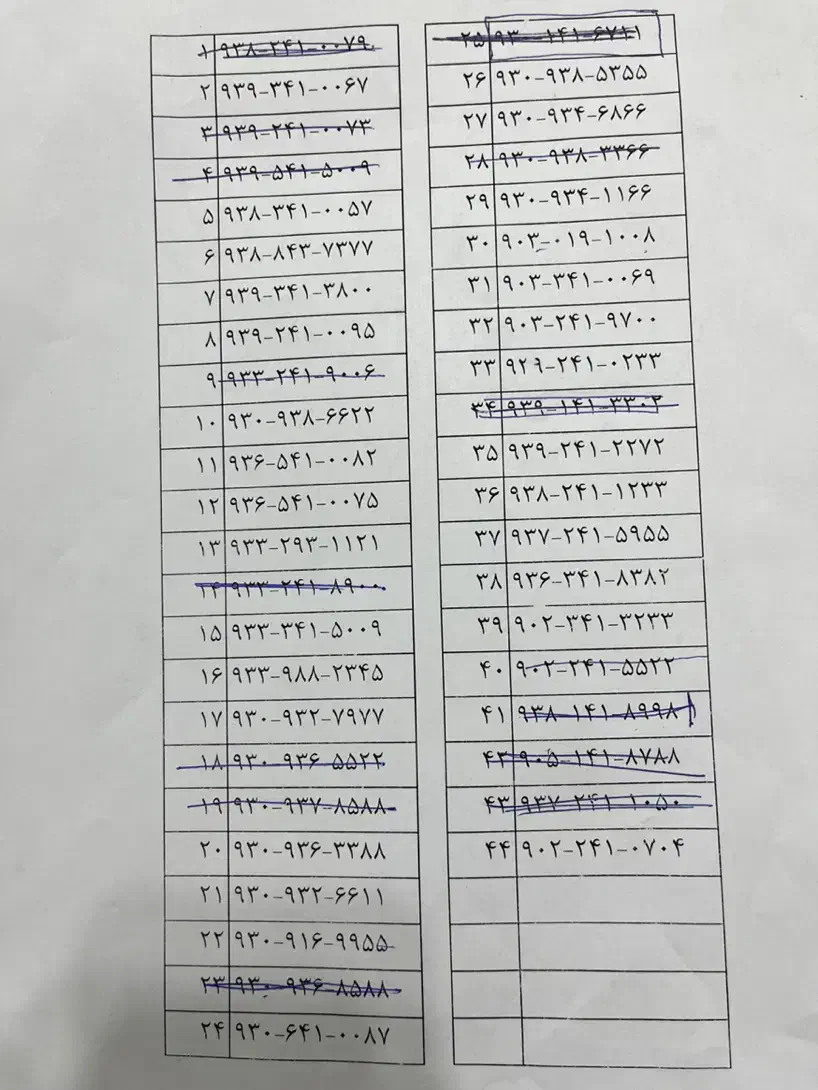 ۱ ۹۳۸-۲۴۱-۰۰۷۹
۲ ۹۳۹-۳۴۱-۰۰۶۷
۳ ۹۳۹-۲۴۱-۰۰۷۳
۴ ۹۳۹-۵۴۱-۵۰۰۹
۵ ۹۳۸-۳۴۱-۰۰۵۷
۶ ۹۳۸-۸۴۳-۷۳۷۷
۷ ۹۳۹-۳۴۱-۳۸۰۰
۸ ۹۳۹-۲۴۱-۰۰۹۵
۹ ۹۳۳-۲۴۱-۹۰۰۶
۱۰ ۹۳۰-۹۳۸-۶۶۲۲
۱۱ ۹۳۶-۵۴۱-۰۰۸۲
۱۲ ۹۳۶-۵۴۱-۰۰۷۵
۱۳ ۹۳۳-۲۹۳-۱۱۲۱
۱۴ ۹۳۳-۲۴۱-۸۹۰۰
۱۵ ۹۳۳-۳۴۱-۵۰۰۹
۱۶ ۹۳۳-۹۸۸-۲۳۴۵
۱۷ ۹۳۰-۹۳۲-۷۹۷۷
۱۸ ۹۳۰-۹۳۶-۵۵۲۲
۱۹ ۹۳۰-۹۳۷-۸۵۸۸
۲۰ ۹۳۰-۹۳۶-۳۳۸۸
۲۱ ۹۳۰-۹۳۲-۶۶۱۱
۲۲ ۹۳۰-۹۱۶-۹۹۵۵
۲۳ ۹۳۰-۹۳۶-۸۵۸۸
۲۴ ۹۳۰-۶۴۱-۰۰۸۷
۲۵ ۹۳۰-۱۴۱-۶۷۱۱
۲۶ ۹۳۰-۹۳۸-۵۳۵۵
۲۷ ۹۳۰-۹۳۴-۶۸۶۶
۲۸ ۹۳۰-۹۳۸-۳۳۶۶
۲۹ ۹۳۰-۹۳۴-۱۱۶۶
۳۰ ۹۰۳-۰۱۹-۱۰۰۸
۳۱ ۹۰۳-۳۴۱-۰۰۶۹
۳۲ ۹۰۳-۲۴۱-۹۷۰۰
۳۳ ۹۳۶-۲۴۱-۰۲۳۳
۳۴ ۹۳۹-۱۴۱-۳۳۰۲
۳۵ ۹۳۹-۲۴۱-۲۲۷۲
۳۶ ۹۳۸-۲۴۱-۱۲۳۳
۳۷ ۹۳۷-۲۴۱-۵۹۵۵
۳۸ ۹۳۶-۳۴۱-۸۳۸۲
۳۹ ۹۰۲-۳۴۱-۳۲۳۳
۴۰ ۹۰۲-۲۴۱-۵۵۲۲
۴۱ ۹۳۸-۱۴۱-۸۹۹۸
۴۲ ۹۰۵-۱۴۱-۸۷۸۸
۴۳ ۹۳۷-۲۴۱-۱۰۵۰
۴۴ ۹۰۲-۲۴۱-۰۷۰۴